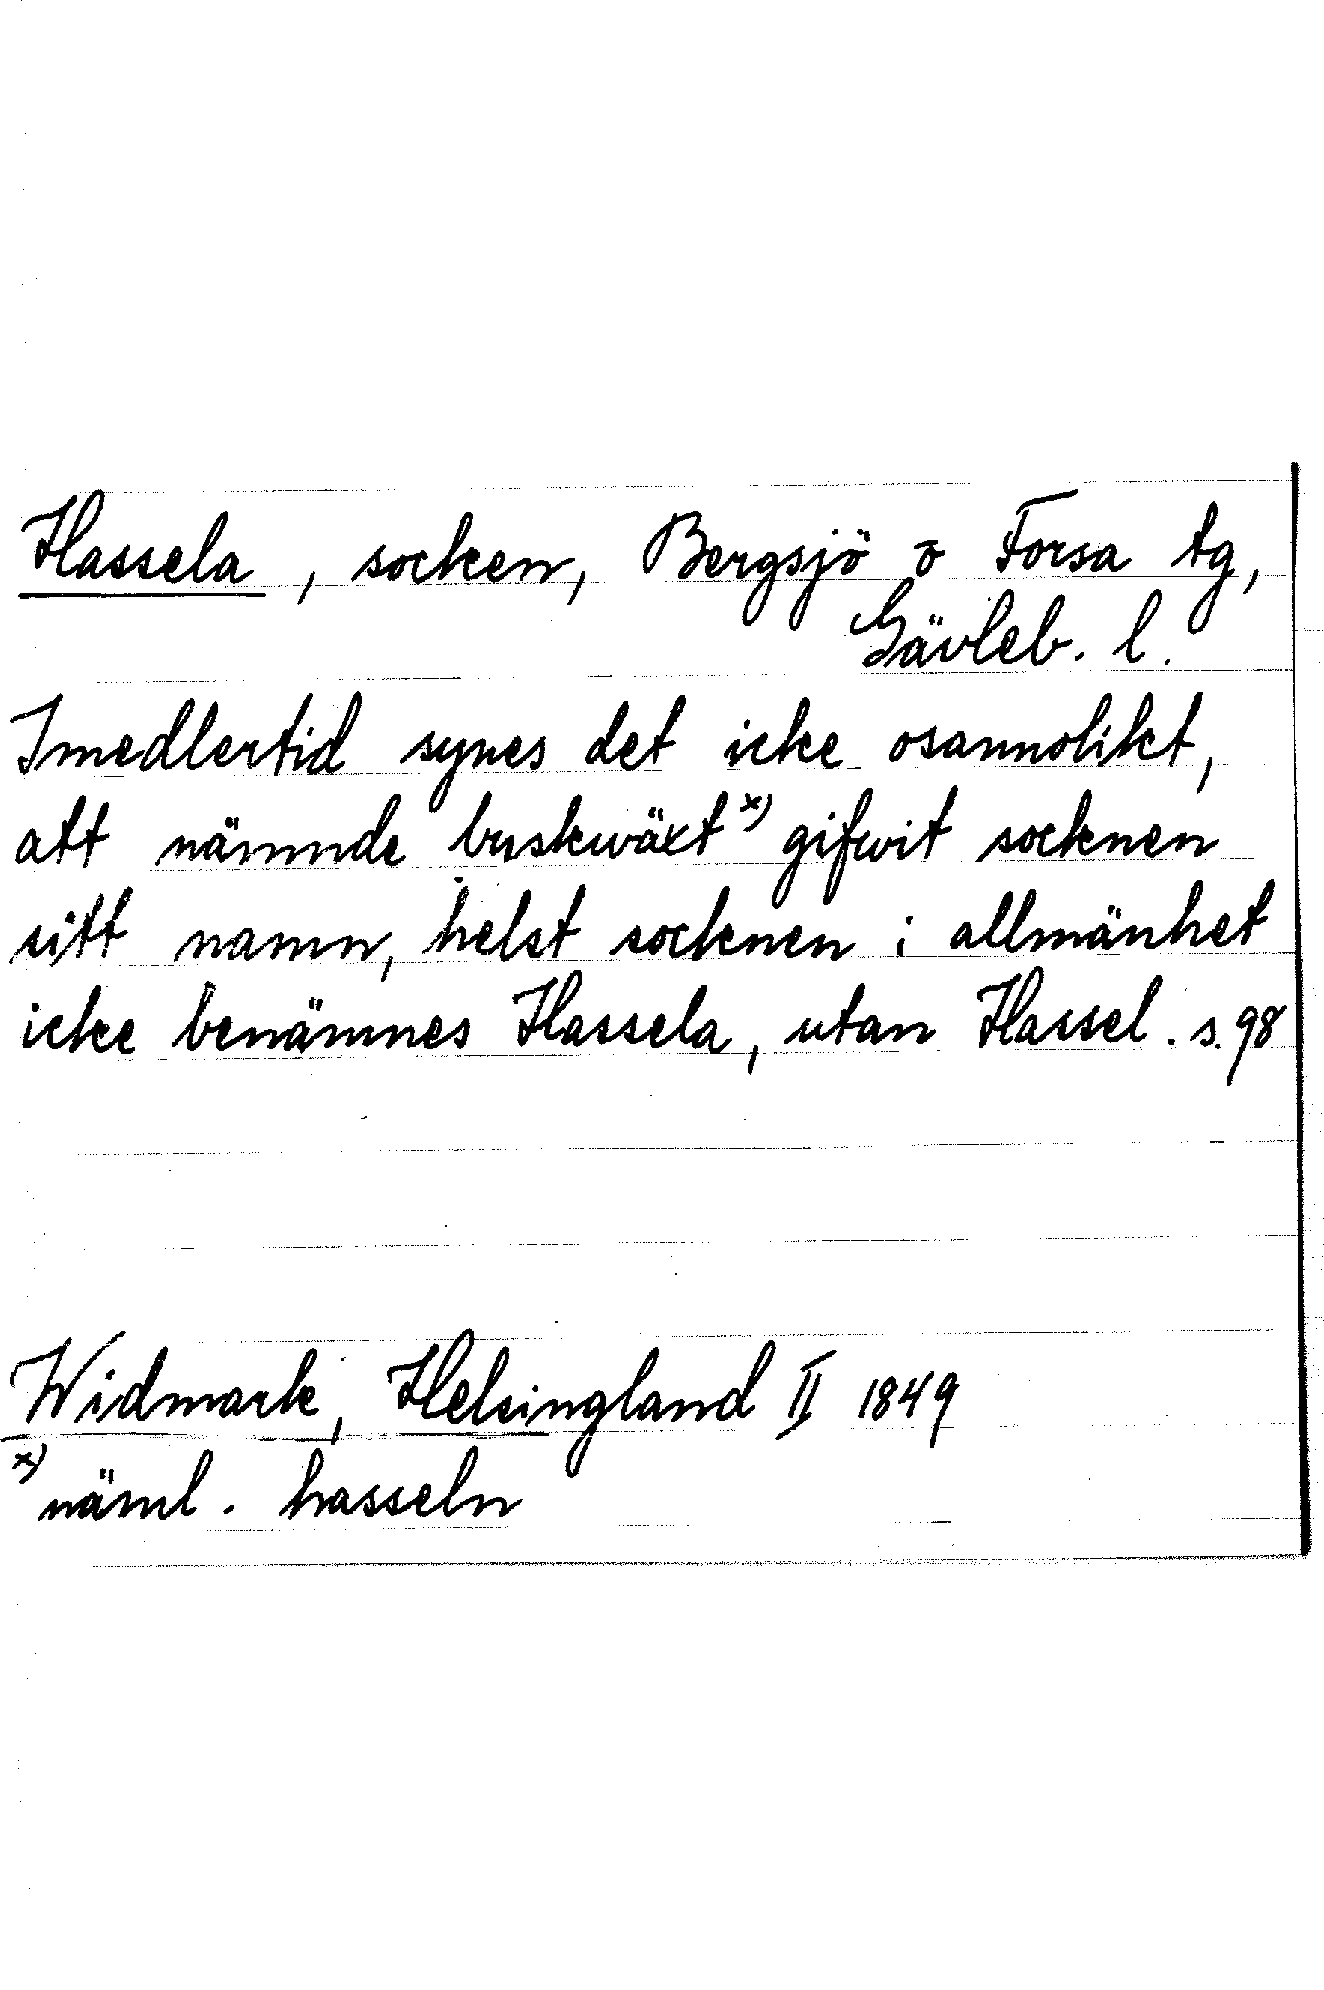 Hassela, socken, Bergsjö o Forsa tg,
Gävleb. l.
Imedlertid synes det icke osannolikt,
att nämnde buskwäxt x) gifwit socknen
sitt namn, helst socknen i allmänhet
icke benämnes Hassela, utan Hassel. s. 98
Widmark, Helsingland II 1849
x) näml. hasseln